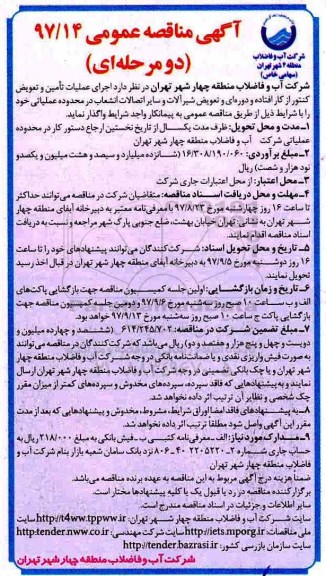 آگهی مناقصه عمومی ۹۷/۱۴
(دو مرحله‌ای)
شرکت آب و فاضلاب
منطقه ۴ شهر تهران
(سهامی خاص)
شرکت آب و فاضلاب منطقه چهار شهر تهران در نظر دارد اجرای عملیات تأمین و تعویض
کنتور از کار افتاده و دوره‌ای و تعویض شیرآلات و سایر اتصالات انشعاب در محدوده عملیاتی خود
را با شرایط ذیل از طریق مناقصه عمومی به پیمانکار واجد شرایط واگذار نماید.
۱-مدت و محل تحویل: ظرف مدت یکسال از تاریخ نخستین ارجاع دستور کار در محدوده
عملیاتی شرکت آب و فاضلاب منطقه چهار شهر تهران
۲-مبلغ برآوردی: ۱۶/۳۰۸/۱۹۰/۰۶۰ (شانزده میلیارد و سیصد و هشت میلیون و یکصدو
نود هزار و شصت) ریال
۳-محل اعتبار: از محل اعتبارات جاری شرکت
۴-مهلت و محل دریافت اسناد مناقصه: متقاضیان شرکت در مناقصه می‌توانند حداکثر
تا ساعت ۱۶ روز چهارشنبه مورخ ۹۷/۸/۲۳ با معرفی‌نامه معتبر به دبیرخانه آبفای منطقه چهار
شهر تهران به نشانی: تهران خیابان بهشت، ضلع جنوبی پارک شهر مراجعه و نسبت به دریافت
اسناد مناقصه اقدام نمایند.
۵-تاریخ و محل تحویل اسناد: شرکت‌کنندگان می‌توانند پیشنهادهای خود را تا ساعت
۱۶ روز دوشنبه مورخ ۹۷/۹/۵ به دبیرخانه آبفای منطقه چهار شهر تهران در قبال اخذ رسید
تحویل نمایند.
۶-تاریخ و زمان بازگشایی: اولین جلسه کمیسیون مناقصه جهت بازگشایی پاکت‌های
الف و ب ساعت ۱۰ صبح روز سه‌شنبه مورخ ۹۷/۹/۶ و دومین جلسه کمیسیون مناقصه جهت
بازگشایی پاکت ج ساعت ۱۰ صبح روز سه‌شنبه مورخ ۹۷/۹/۱۳ خواهد بود.
۷-مبلغ تضمین شرکت در مناقصه: ۶۱۴/۲۴۵/۷۰۲ (ششصد و چهارده میلیون و
دویست و چهل و پنج هزار و هفتصد و دو) ریال می‌باشد که شرکت‌کنندگان در مناقصه می‌توانند
به صورت فیش واریزی نقدی و یا ضمانت‌نامه بانکی در وجه شرکت آب و فاضلاب منطقه چهار
شهر تهران و یا چک بانکی تضمینی در وجه شرکت آب و فاضلاب منطقه چهار شهر تهران ارسال
نمایند و به پیشنهادهایی که فاقد سپرده، سپرده‌های مخدوش و سپرده‌های کمتر از میزان مقرر
چک شخصی و نظایر آن ترتیب اثر داده نخواهد شد.
۸-به پیشنهادهای فاقد امضا اوراق شرایط، مشروط، مخدوش و پیشنهادهایی که بعد از مدت
مقرر این آگهی واصل شود مطلقا ترتیب اثر داده نخواهد شد.
۹-مدارک مورد نیاز: الف-معرفی‌نامه کتبی ب-فیش بانکی به مبلغ ۲۱۸/۰۰۰ ریال به
حساب جاری شماره ۲-۲۲۰۵۲۲۰-۴۰-۸۰۶ نزد بانک سامان شعبه بازار بنام شرکت آب و
فاضلاب منطقه چهار شهر تهران
ضمناً هزینه درج آگهی مربوط به این مناقصه به عهده برنده مناقصه می‌باشد.
برگزار کننده مناقصه در رد یا قبول یک یا کلیه پیشنهادها مختار است.
سایر اطلاعات و جزئیات در اسناد مناقصه مندرج است.
سایت شرکت آب و فاضلاب منطقه چهار شهر تهران: http://t4ww.tppww.ir سایت
ملی مناقصات: http://iets.mporg.ir سایت شرکت مهندسی: http:tender.nww.co.ir
سایت سازمان بازرسی کشور: http://tender.bazrasi.ir
شرکت آب و فاضلاب منطقه چهار شهر تهران